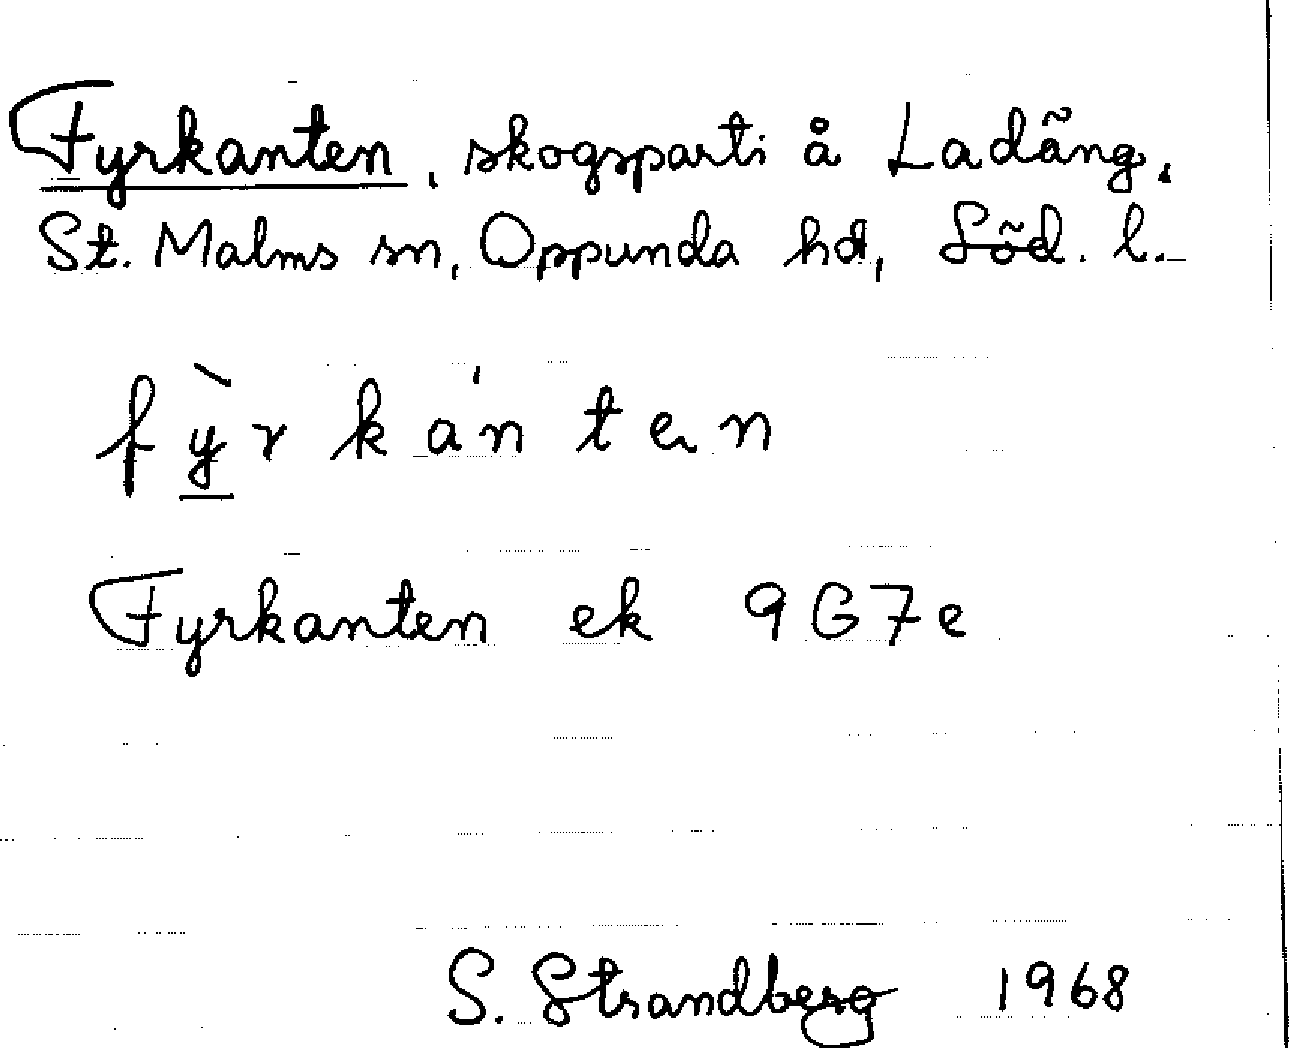 Fyrkanten, skogsparti å Ladäng,
St. Malms sn, Oppunda hd, Söd. l.
fỳ̲rkánten
Fyrkanten ek 9G7e
S. Strandberg 1968